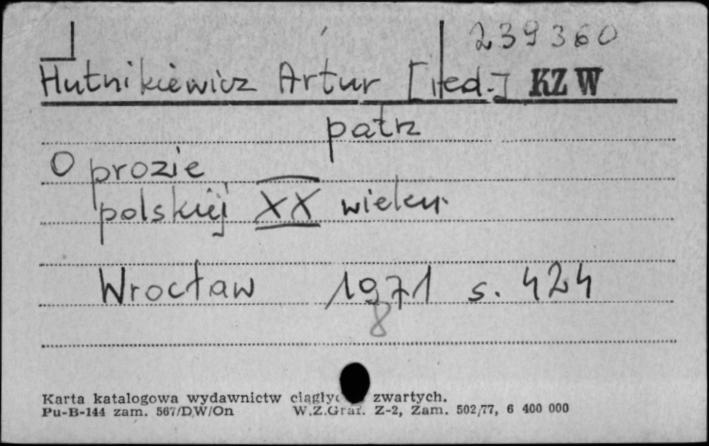 239360
Hutnikiewicz Artur [red.] KZW
patrz
O prozie
polskiej XX wieku.
Wrocław 1971 s. 424
8
Karta katalogowa wydawnictw ciągłyc zwartych.
Pu-B-144 zam. 567/D/W/On W.Z.Graf. Z-2, Zam. 502/77, 6 400 000